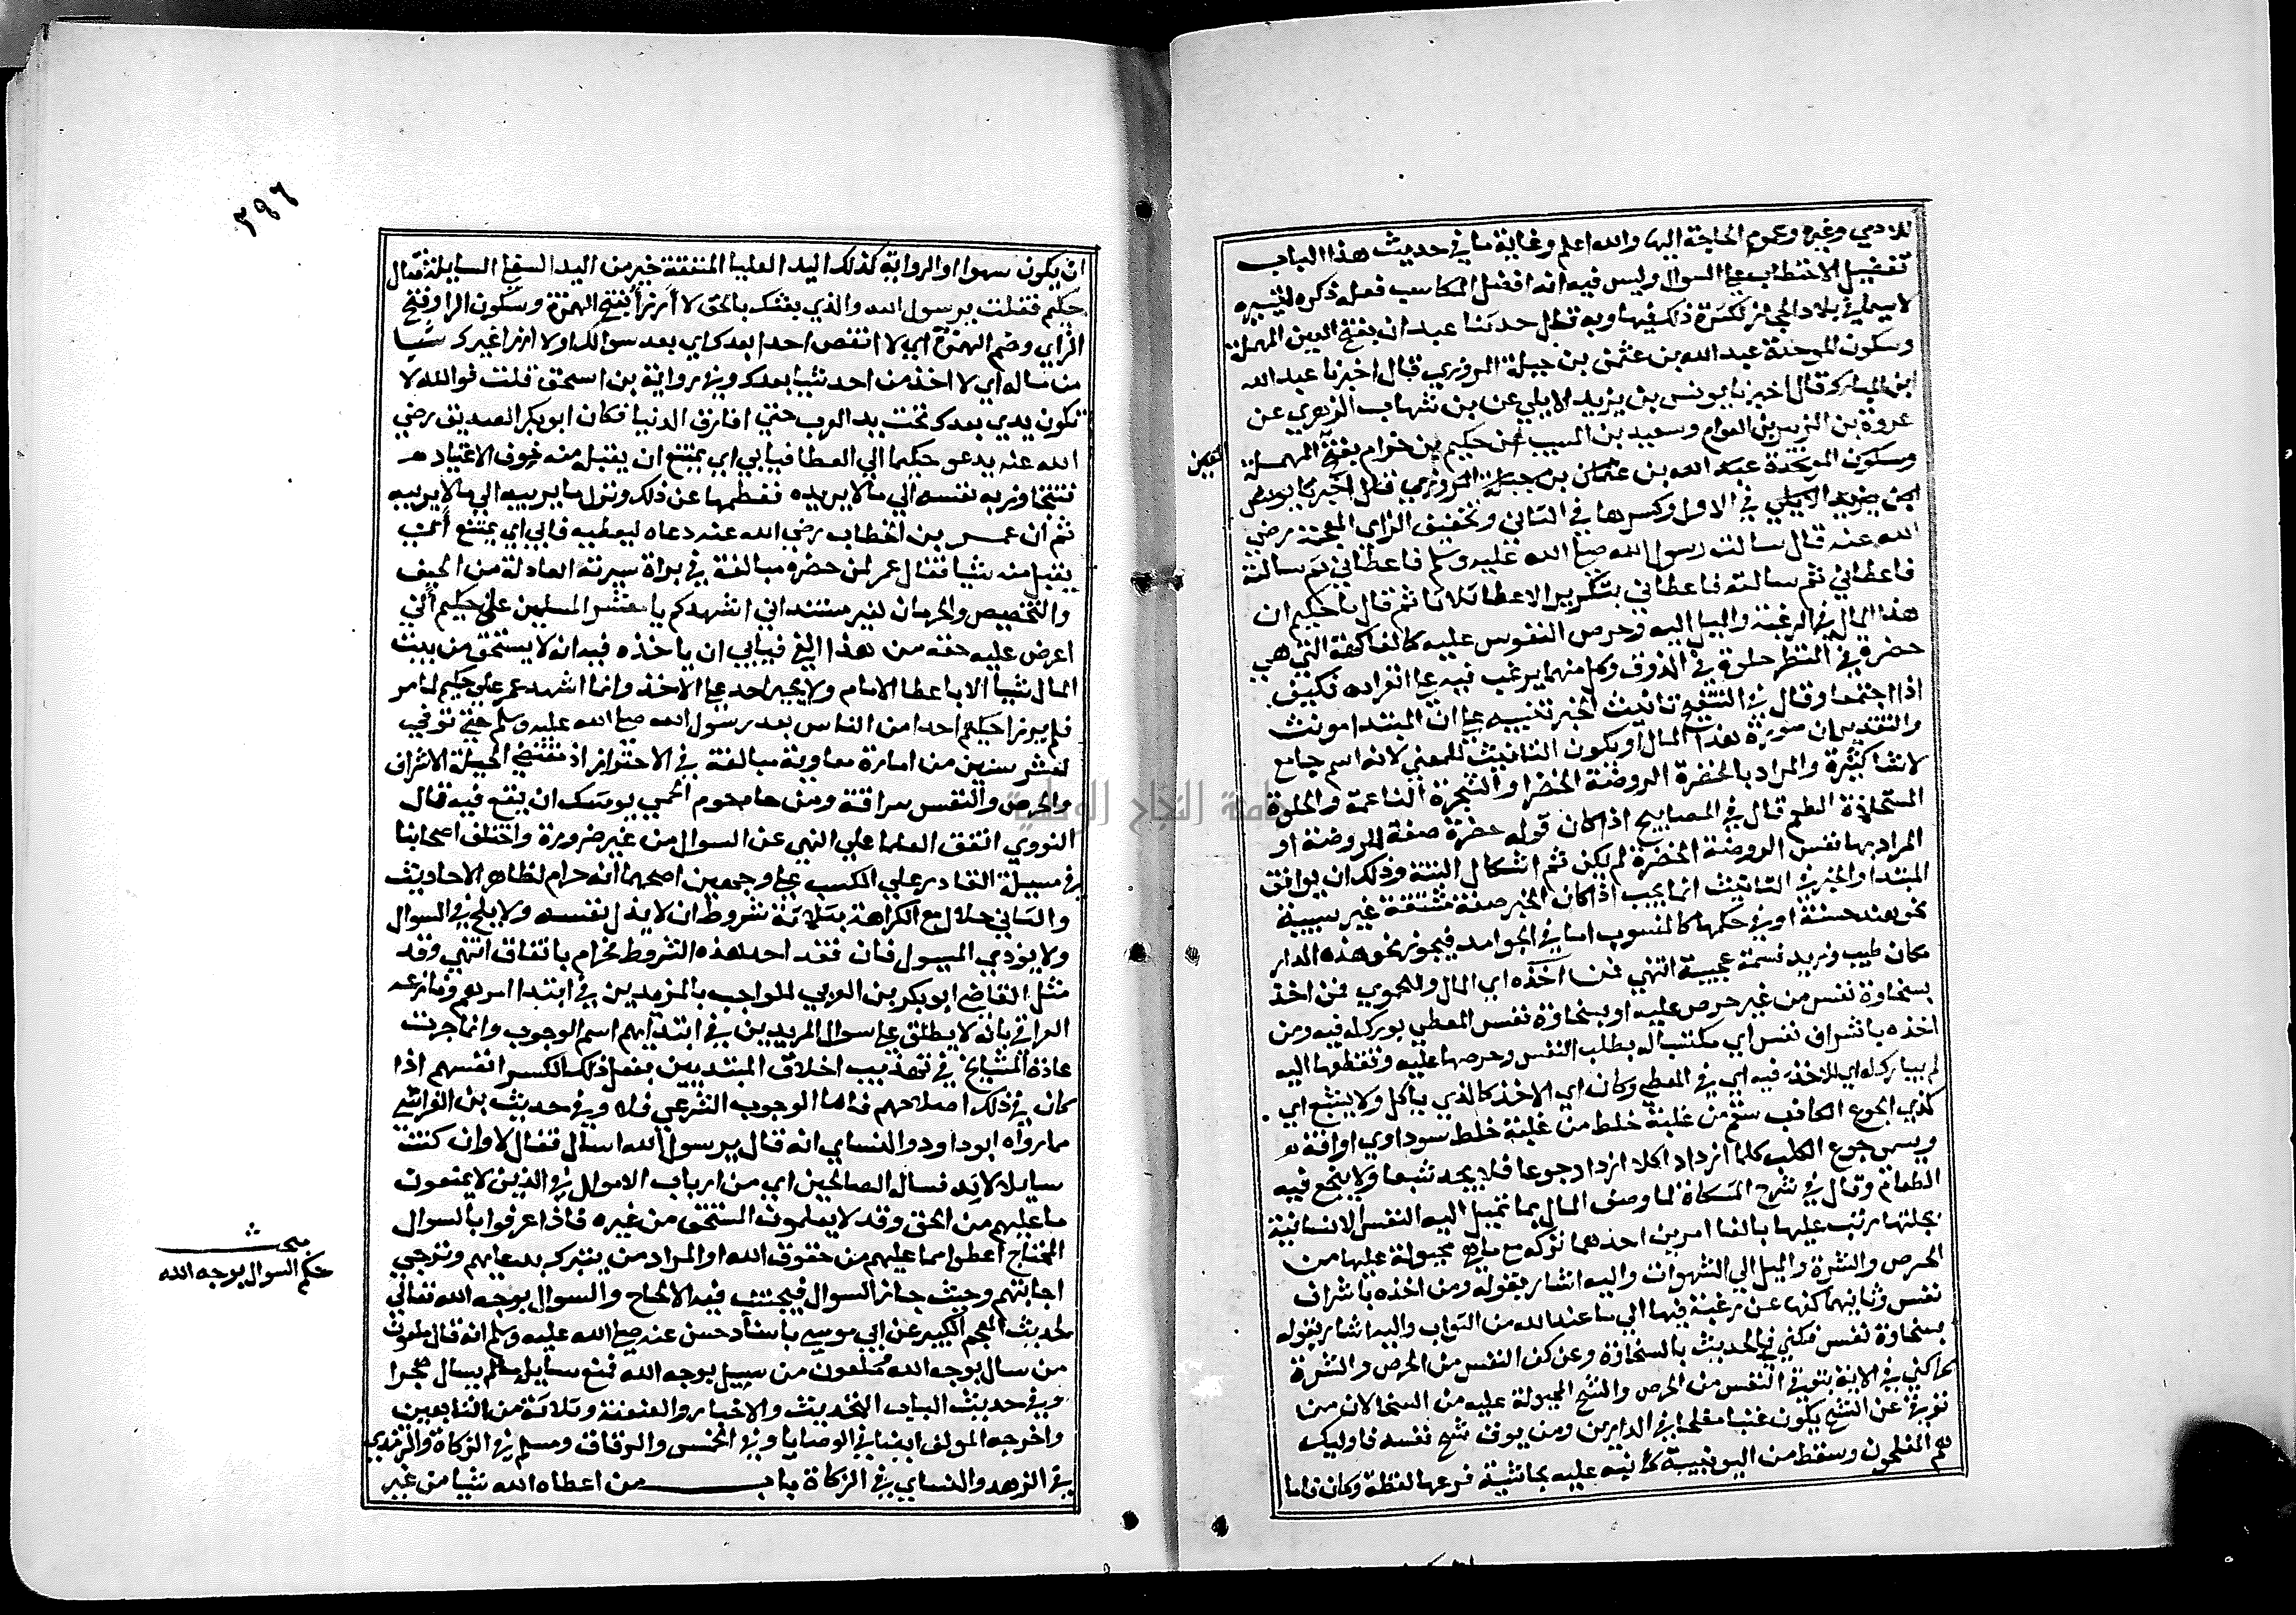 للادمي وغيره وعموم الحاجة اليها والله اعلم وغاية ما في حديث هذا الباب
تفضيل الاحتطاب علي السوال وليس فيه انه افضل المكاسب فعله ذكره لتيسره
لاسيما في بلاد الحجاز لكثرة ذلك فيها وبه قال حدثنا عبدان بفتح العين المهملة
وسكون الموحدة عبد الله بن عثمن بن جبلة المروزي قال اخبرنا عبد الله
ابن المبارك قال اخبرنا يونس بن يزيد الايلي عن بن شهاب الزهري عن
عروة بن الزبير بن العوام وسعيد بن المسيب عن حكيم بن حزام بفتح المهملة
وسكون الموحدة عبد الله بن عثمان بن جبلة المروزي قال اخبرنا يونس
بن يزيد الايلي في الاول وكسرها في الثاني وتخفيف الزاي المعجمة رضي
الله عنه قال سالت رسول الله صلي الله عليه وسلم فاعطاني ثم سالته
فاعطاني ثم سالته فاعطاني بتكرير الاعطا ثلاثا ثم قال يا حكيم ان
هذا المال في الرغبة والميل اليه وحرص النفوس عليه كالفاكهة التي هي
خضرة في المنظر حلوة في الذوق وكل منهما يرغب فيه علي انفراده فكيف
اذا اجتمعا وقال في التنقيح تانيث الخبر تنبيه علي ان المبتدا مونث
والتقدير ان صورة هذا المال او يكون التانيث للمعني لانه اسم جامع
لاشيا كثيرة والمراد بالخضرة الروضة الخضرا والشجرة الناعمة والحلوة
المستحلاة الطعم قال في المصابيح اذا كان قوله خضرة صفة للروضة او
المراد بها نفس الروضة الخضرة لم يكن ثم اشكال البتة وذلك ان توافق
المبتدا والخبر في التانيث انما يجب اذا كان الخبر صفة مشتقة غير سببية
نحو هند حسنة او في حكمها كالمنسوب اما في الجوامد فيجوز نحو هذه الدار
مكان طيب وزيد نسمة عجيبة انتهي فمن اخذه اي المال وللحموي فمن اخذ
بسخاوة نفس من غير حرص عليه او بسخاوة نفس المعطي بورك له فيه ومن
اخذه باشراف نفس اي مكتسبا له بطلب النفس وحرصها عليه وتطلعها اليه
لم يبارك له اي للاخذ فيه اي في المعطي وكان اي الاخذ كالذي ياكل ولا يشبع اي
كذي الجوع الكاذب سقم من غلبة خلط من غلبة خلط سوداوي او افة
ويسمي جوع الكلب كلما ازداد اكلا ازداد جوعا فلا يجد شبعا ولا ينجع فيه
الطعام وقال في شرح المشكاة لما وصف المال بما تميل اليه النفس الانسانية
بجبلتها رتب عليها بالفا امرين احدهما تركه مع ما هي مجبولة عليها من
الحرص والشرة والميل الي الشهوات واليه اشار بقوله ومن اخذه باشراف
نفس وثانيهما كفها عن الرغبة فيها الي ما عند الله من الثواب واليه اشار بقوله
بسخاوة نفس فكني في الحديث بالسخاوة عن كف النفس من الحرص والشرة
كما كني في الاية بتوقي النفس من الحرص والشح المجبولة عليه من السخا لان من
توقي عن الشح يكون غنيا مفلحا في الدارين ومن يوق شح نفسه فاوليك
هم المفلحون وسقط من اليونينية كما نبه عليه بحاشية فرعها لفظة وكان فاما
٣٩٦
ان يكون سهوا او الرواية كذلك اليد العليا المنفقة خير من اليد السفلي السايلة قال
حكيم فقلت يرسول الله والذي بعثك بالحق لا ارزا بفتح الهمزة وسكون الرا وفتح
الزاي وضم الهمزة اي لا انقص احدا بعدك اي بعد سوالك او لا ارزا غيرك شيا
من ماله اي لا اخذ من احد شيا بعدك وفي رواية بن اسحق قلت فوالله لا
تكون يدي بعدك تحت يد العرب حتي افارق الدنيا فكان ابو بكر الصديق رضي
الله عنه يدعو حكيما الي العطا فيابي اي يمتنع ان يقبله منه خوف الاعتياد
فتتجاوز به نفسه الي ما لا يريده ففطمها عن ذلك وترك ما يريبه الي ما لا يريبه
ثم ان عمر بن الخطاب رضي الله عنه دعاه ليعطيه فابي اي يمتنع ان
يقبل منه شيا فقال عمر لمن حضره مبالغة في براة سيرته العادلة من الحيف
والتخصيص والحرمان لغير مستند اني اشهدكم يا معشر المسلمين علي حكيم اني
اعرض عليه حقه من هذا الفي فيابي ان ياخذه فيه انه لا يستحق من بيت
المال شيا الا باعطا الامام ولا يجبر احد علي الاخذ وانما اشهد عمر علي حكيم لما مر
فلم يرزا حكيم احدا من الناس بعد رسول الله صلي الله عليه وسلم حتي توفي
لعشر سنين من امارة معاوية مبالغة في الاحتراز اذ مقتضي الجبلة الاشراف
والحرص والنفس سراقة ومن حام حوم الحمي يوشك ان يقع فيه قال
النووي اتفق العلما علي النهي عن السوال من غير ضرورة واختلف اصحابنا
في مسيلة القادر علي الكسب علي وجهين اصحهما انه حرام لظاهر الاحاديث
والثاني حلال مع الكراهة بثلاثة شروط ان لا يذل نفسه ولا يلح في السوال
ولا يوذي المسيول فان فقد احد هذه الشروط فحرام باتفاق انتهي وقد
مثل القاضي ابو بكر بن العربي للواجب بالمريدين في ابتدا امرهم ونازعه
العراقي بانه لا يطلق علي سوال المريدين في ابتدايهم اسم الوجوب وانما جرت
عادة المشايخ في تهذيب اخلاق المبتديين بفعل ذلك لكسر انفسهم اذا
كان في ذلك اصلاحهم فاما الوجوب الشرعي فلا وفي حديث بن الفراسي
مما رواه ابو داود والنساي انه قال يرسول الله اسال فقال لا وان كنت
سايلا لابد فسال الصالحين اي من ارباب الاموال والذين لا يمنعون
ما عليهم من الحق وقد لا يعلمون المستحق من غيره فاذا عرفوا بالسوال
المحتاج اعطوا مما عليهم من حقوق الله او المراد من يتبرك بدعايهم وترجي
اجابتهم وحيث جاز السوال فيجتنب فيه الالحاح والسوال بوجه الله تعالي
لحديث المعجم الكبير عن ابي موسي باسناد حسن عنه صلي الله عليه وسلم انه قال ملعون
من سال بوجه الله وملعون من سيل بوجه الله فمنع سايله ما لم يسال هجرا
وفي حديث الباب التحديث والاخبار والعنعنة وثلاثة من التابعين
واخرجه المولف ايضا في الوصايا وفي الخمس والرقاق ومسلم في الزكاة والترمذي
في الزهد والنساي في الزكاة باب من اعطاه الله شيا من غير
مبحث
حكم السوال بوجه الله
جامعة النجاح الوطنية